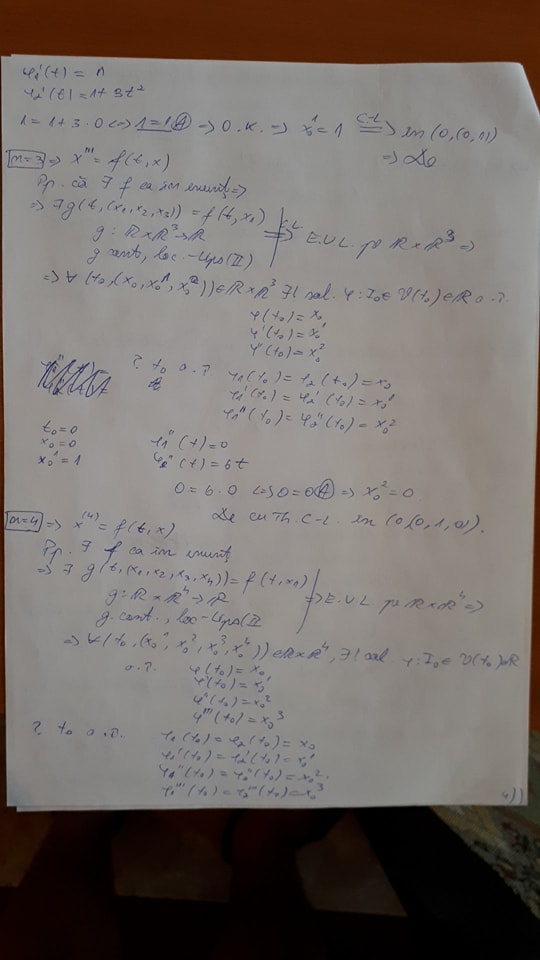 φ₁'(t) = 1
φ₂'(t) = 1+3t²
1 = 1+3·0 <=> 1=1 (A) => O.K. => x₀¹ = 1 =C.L=> în (0,(0,1))
=> Do
n=3 => x''' = f(t,x)
Pp. că ∃ f ca în enunț =>
=> ∃ g(t,(x₁,x₂,x₃)) = f(t,x₁)
g: ℝ×ℝ³→ℝ =C.L=> E.U.L. pe ℝ×ℝ³ =>
g cont, loc.-Lips(II)
=> ∀ (t₀,(x₀,x₀¹,x₀²)) ∈ ℝ×ℝ³ ∃! sol. φ: I₀ ∈ V(t₀) ∈ ℝ a.î.
φ(t₀) = x₀
φ'(t₀) = x₀¹
φ''(t₀) = x₀²
? t₀ a.î. φ₁(t₀) = φ₂(t₀) = x₀
φ₁'(t₀) = φ₂'(t₀) = x₀¹
φ₁''(t₀) = φ₂''(t₀) = x₀²
t₀=0
x₀=0 φ₁''(t) = 0
x₀¹=1 φ₂''(t) = 6t
0 = 6·0 <=> 0=0 (A) => x₀² = 0
Do cu Th. C-L. în (0,(0,1,0)).
n=4 => x⁽⁴⁾ = f(t,x)
Pp. ∃ f ca în enunț
=> ∃ g(t,(x₁,x₂,x₃,x₄)) = f(t,x₁)
g: ℝ×ℝ⁴→ℝ => E.U.L. pe ℝ×ℝ⁴ =>
g cont., loc-Lips(II
=> ∀ (t₀,(x₀¹,x₀²,x₀³,x₀⁴)) ∈ ℝ×ℝ⁴, ∃! sol. φ: I₀ ∈ V(t₀) ℝ
a.î. φ(t₀) = x₀
φ'(t₀) = x₀¹
φ''(t₀) = x₀²
φ'''(t₀) = x₀³
? t₀ a.î. φ₁(t₀) = φ₂(t₀) = x₀
φ₁'(t₀) = φ₂'(t₀) = x₀¹
φ₁''(t₀) = φ₂''(t₀) = x₀²
φ₁'''(t₀) = φ₂'''(t₀) = x₀³
4))